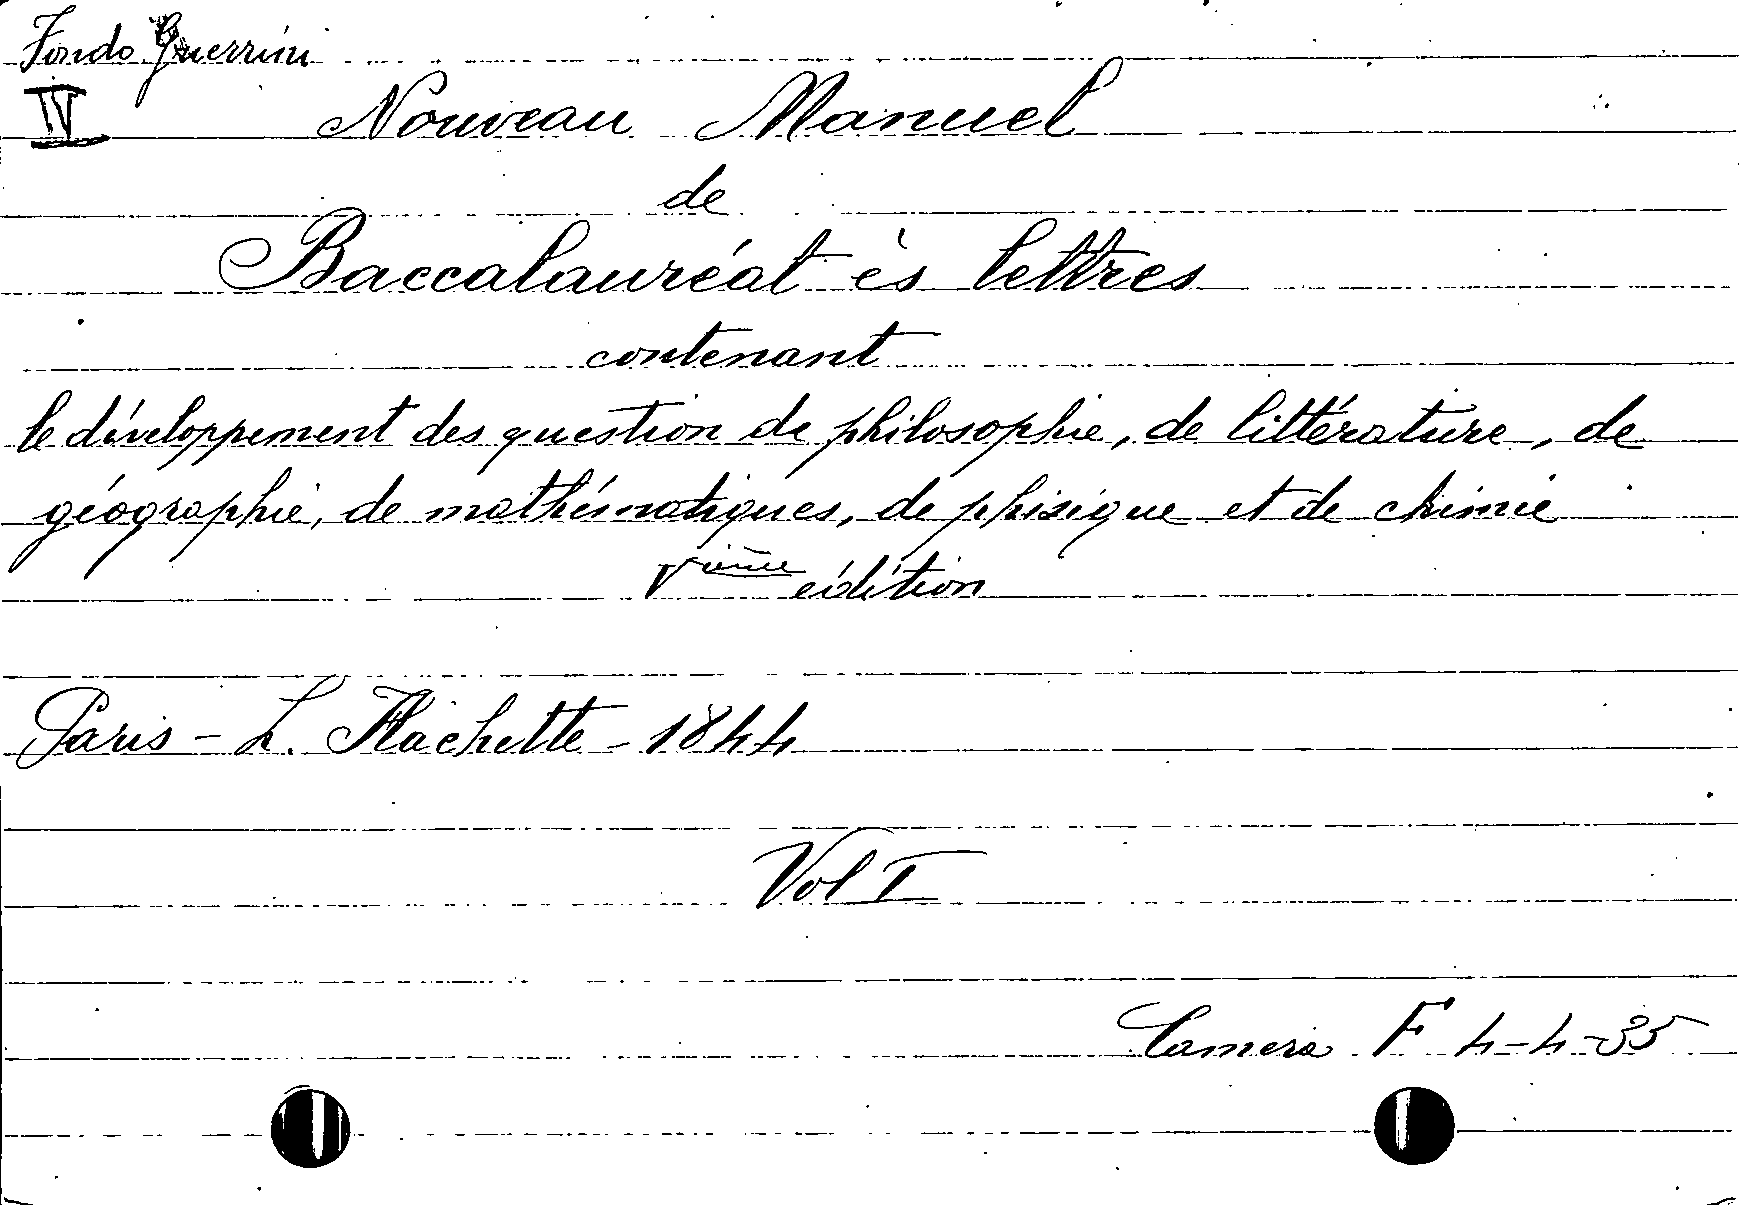 Fondo Guerrini
IV
Nouveau Manuel
de
Baccalauréat ès lettres
contenant
le développement des question de philosophie, de littérature, de
géographie, de mathématiques, de phisique et de chimie
Vième édition
Paris - L. Hachette - 1844
Vol I
Camera F 4-4-35